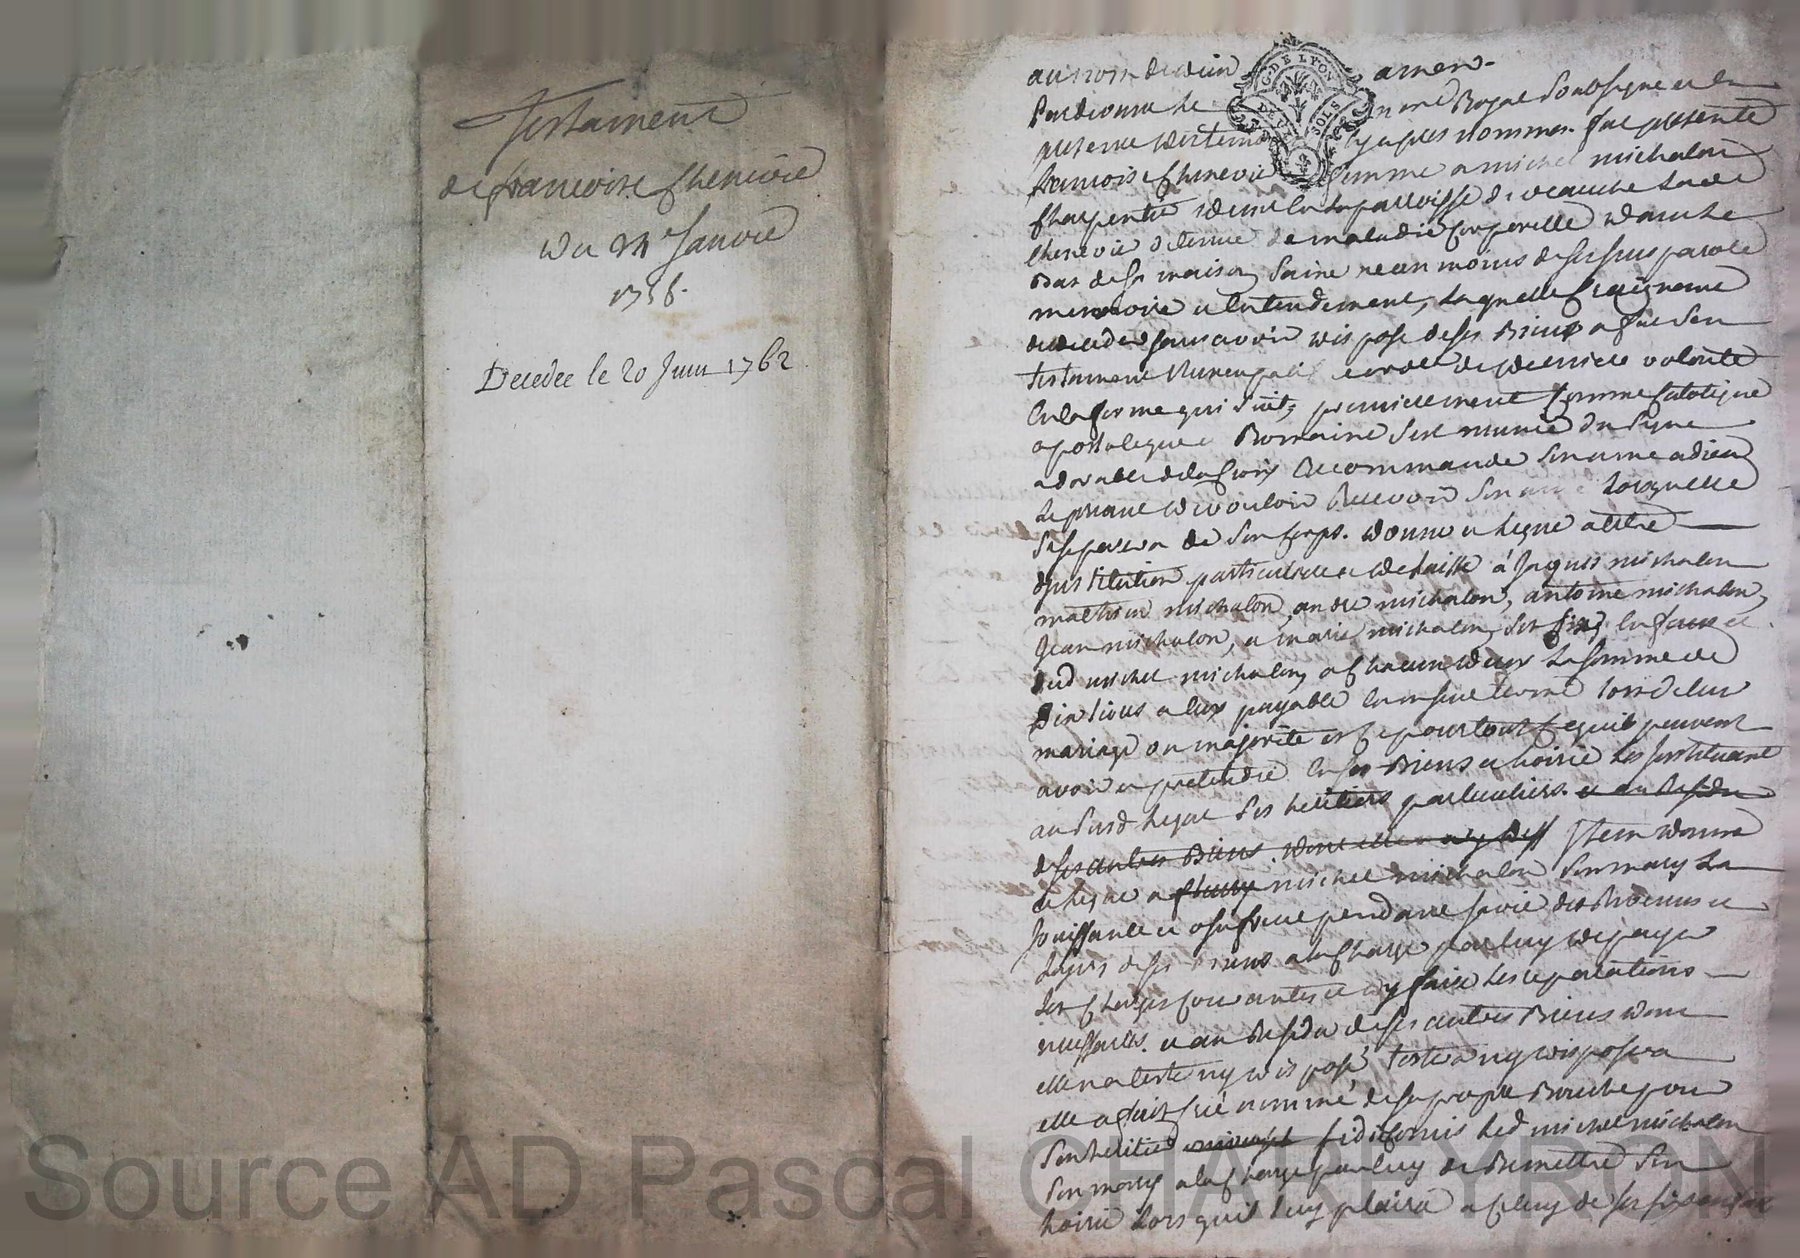 Testament
de francoise Chenevie
du 21e Janvie
1756.
Decedee le 20 Juin 1762
au nom de dieu amen.
Pardevant le Royal soubsigne et en
presence des temoins cy apres nommes. fut presente
francoise Chenevie femme a michel michalon
Charpentie de la paroisse de veauche Lade
Chenevie detenue de maladie Corporelle dans le
Bas de sa maison, saine neanmoins de ses sens parole
memoire et entendement, Laquelle Craignant
de deceder sans avoir dispose de ses Biens a fait son
testament Nuncupatif et ordre de derniere volonte
En la forme qui suit, premierement Comme Catolique
apostolique Romaine sest munie du signe
adorable de la Croix Recommande son ame a dieu
Le priant de vouloir Recevoir son ame Lorsquelle
se separera de son Corps. donne et legue a titre
dinstitution particuliere et delaisse à Jaques michalon
mathieu michalon, andre michalon, antoine michalon,
Jean michalon, et marie michalon, ses six
dud michel michalon, a Chacun deux La somme de
Cinq sous a eux payable lors de leur
mariage ou majorite et Ce pour tout Ce quils peuvent
avoir et pretendre En ses Biens et hoirie Les Instituant
au susd legat ses heritiers particuliers et au Residu
de ses autres Biens dont elle n a Item donne
et legue a michel michalon son mary La
Jouissance et usufruit pendant sa vie des Revenus et
de ses Biens a la Charge par luy de payer
les Charges Courantes et dy faire les reparations
necessaires. et au Residu de ses autres Biens dont
elle na teste ny dispose, testera ny disposera
elle a fait Cree nomme de sa propre Bouche pour
son heritier fideicomis led michel michalon
son mary a la Charge par luy de Remettre son
hoirie Lors quil luy plaira a Celuy de ses six enfans
Source AD Pascal CHAREYRON
G. DE LYON
DEUX SOLS